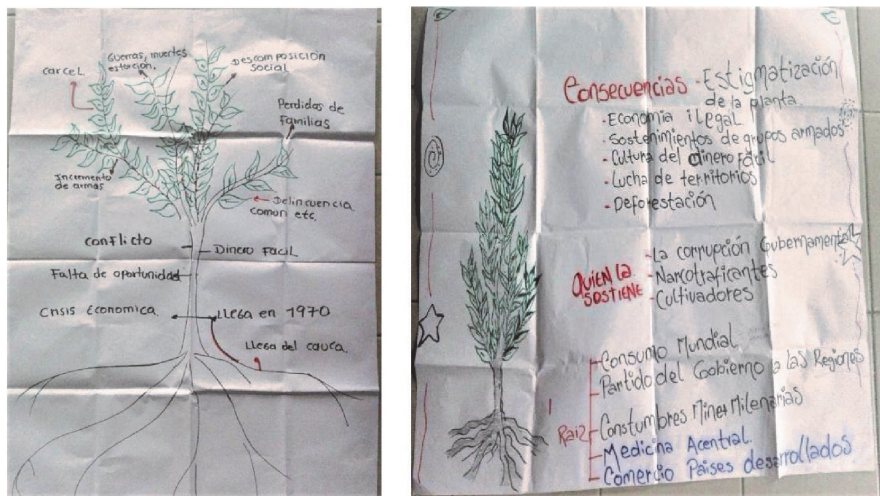 carcel
Guerras, muertes
estorcion.
Descomposicion
social
Perdidas de
familias
Incremento
de armas
Delincuencia
comun etc.
conflicto
Dinero Facil
Falta de oportunidad
Crisis Economica
Llega en 1970
Llega del cauca
Consecuencias - Estigmatización
de la planta.
- Economia ilegal
- Sostenimientos de grupos armados
- Cultura del dinero facil
- Lucha de territorios
- Deforestación
QUIEN LA
SOSTIENE
- La corrupción Gubernamental
- Narcotraficantes
- Cultivadores
Raiz
Consumo Mundial
Partido del Gobierno a las Regiones
Constumbres Milenarias
Medicina Acentral.
Comercio Paises desarrollados